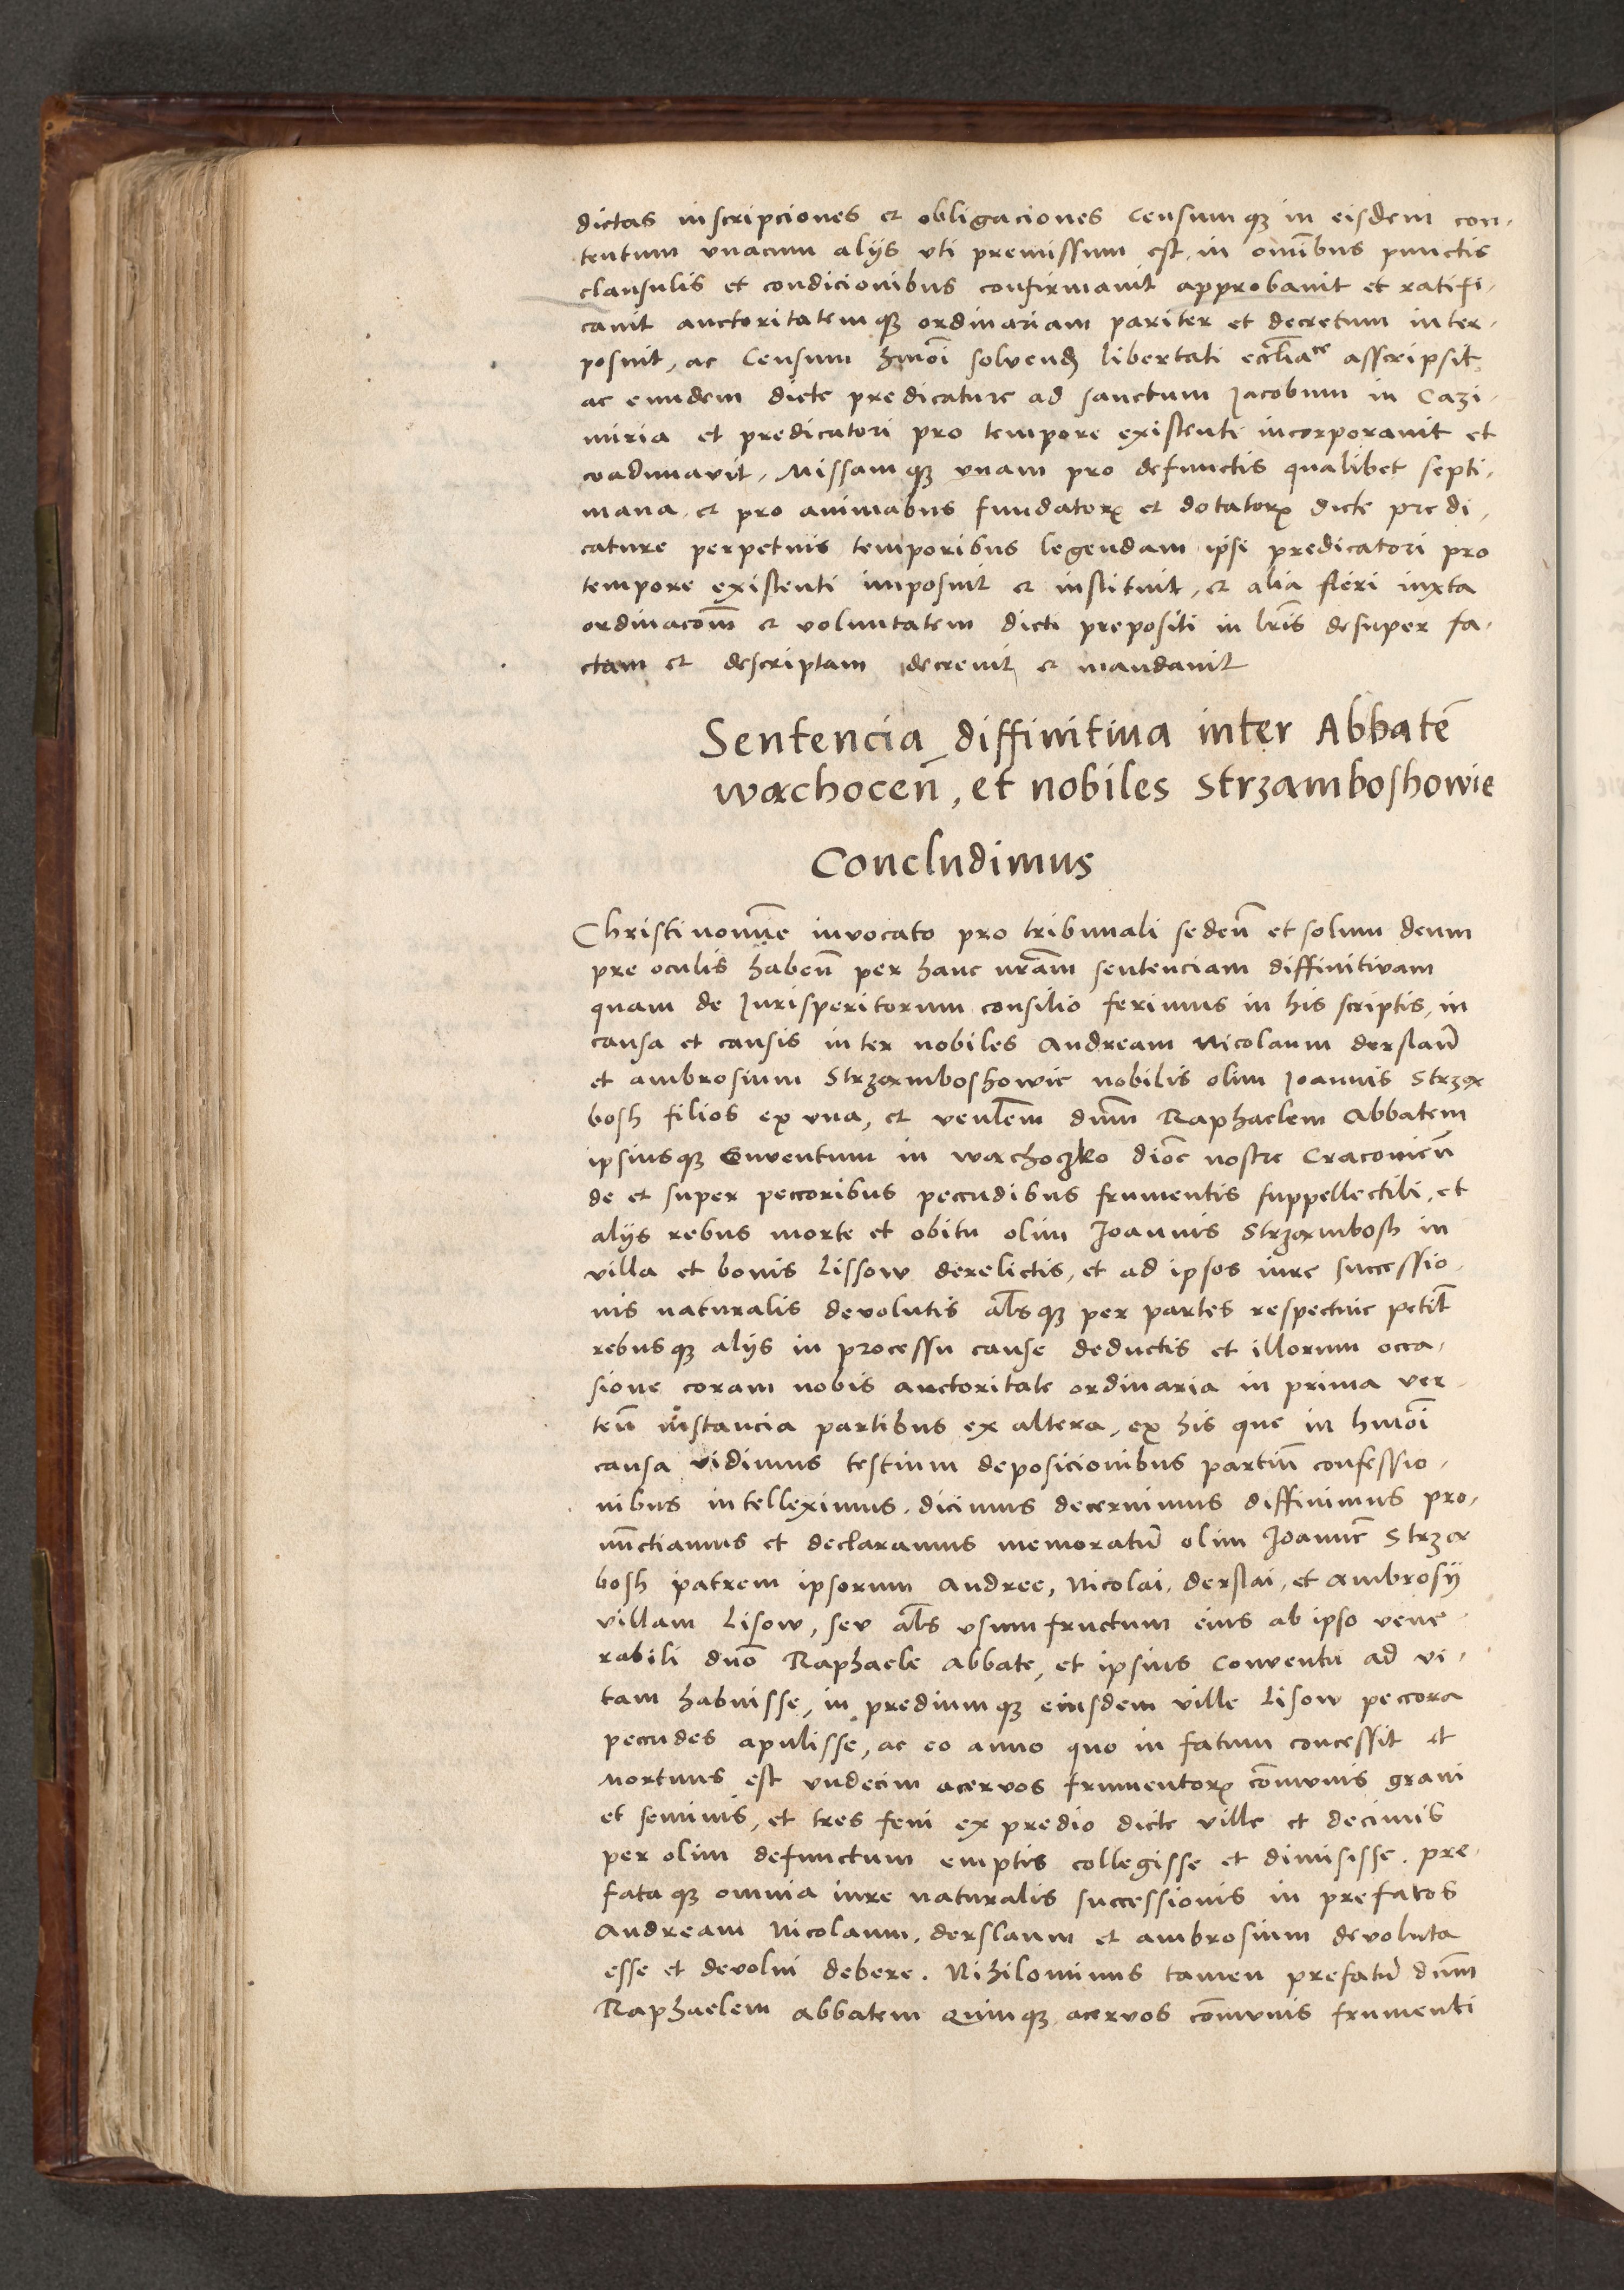 dictas inscripciones et obligaciones Censumqꝫ in eisdem con-
tentum vnacum alijs vti premissum est in om̅ibus punctis
clausulis et condicionibus confirmauit approbauit et ratifi-
cauit auctoritatemqꝫ ordinariam pariter et decretum inter-
posuit, ac Censum hmoi̅ soluend̅ libertati eccl̅iace asscripsit
ac eundem dicte predicature ad sanctum Jacobum in Cazi-
miria et predicatori pro tempore existenti incorporauit et
coadunavit, Missamqꝫ vnam pro defunctis qualibet septi-
mana et pro animabus fundatorꝝ et dotatorꝝ dicte predi-
cature perpetuis temporibus legendam ipsi predicatori pro
tempore existenti imposuit et instituit, et alia fieri iuxta
ordinaco̅m et voluntatem dicti prepositi in lr̅is desuper fa-
ctam et descriptam decreuit et mandauit
Sentencia diffinitiua inter Abbate̅
wąchocen̅, et nobiles Strzamboshowie
Concludimus
Christi nomi̅e invocato pro tribunali seden̅ et solum deum
pre oculis haben̅ per hanc nr̅am sentenciam diffinitivam
quam de Jurisperitorum consilio ferimus in his scriptis, in
causa et causis inter nobiles Andream Nicolaum derslau̅
et ambrosium Strząmboshowie nobilis olim Joannis Strzą
bosh filios ex vna, et venl̅em dn̅m Raphaelem Abbatem
ipsiusqꝫ Conventum in wąchoczko dioc̅ nostre Cracouien̅
de et super peccoribus peccudibus frumentis suppellectili, et
alijs rebus morte et obitu olim Joannis Strząmbosh in
villa et bonis Lissow derelictis, et ad ipsos iure successio-
nis naturalis devolutis al̅sqꝫ per partes respectiue petit̅
rebusqꝫ alijs in processu cause deductis et illorum occa-
sione coram nobis auctoritate ordinaria in prima ver-
ten̅ instancia partibus ex altera, ex his que in hmoi̅
causa vidimus testium deposicionibus partiu̅ confessio-
nibus intelleximus, dicimus decernimus diffinimus pro-
nu̅ctiamus et declaramus memoratu̅ olim Joanne̅ Strzą
bosh patrem ipsorum Andree, Nicolai, derslai, et Ambrosij
villam Lisow, sev al̅s vsumfructum eius ab ipso vene-
rabili dn̅o Raphaele Abbate, et ipsius Conventu ad vi-
tam habuisse, in prediumqꝫ eiusdem ville Lisow peccora
peccudes apulisse, ac eo anno quo in fatum concessit et
Mortuus est vndecim acervos frumentorꝝ co̅mvnis grani
et seminis, et tres feni ex predio dicte ville et decimis
per olim defunctum emptis collegisse et dimisisse. pre-
fataqꝫ omnia iure naturalis successionis in prefatos
Andream Nicolaum, derslaum et ambrosium devoluta
esse et devolui debere. Nihilominus tamen prefatu̅ dn̅m
Raphaelem abbatem Quinqꝫ acervos co̅mvnis frumenti